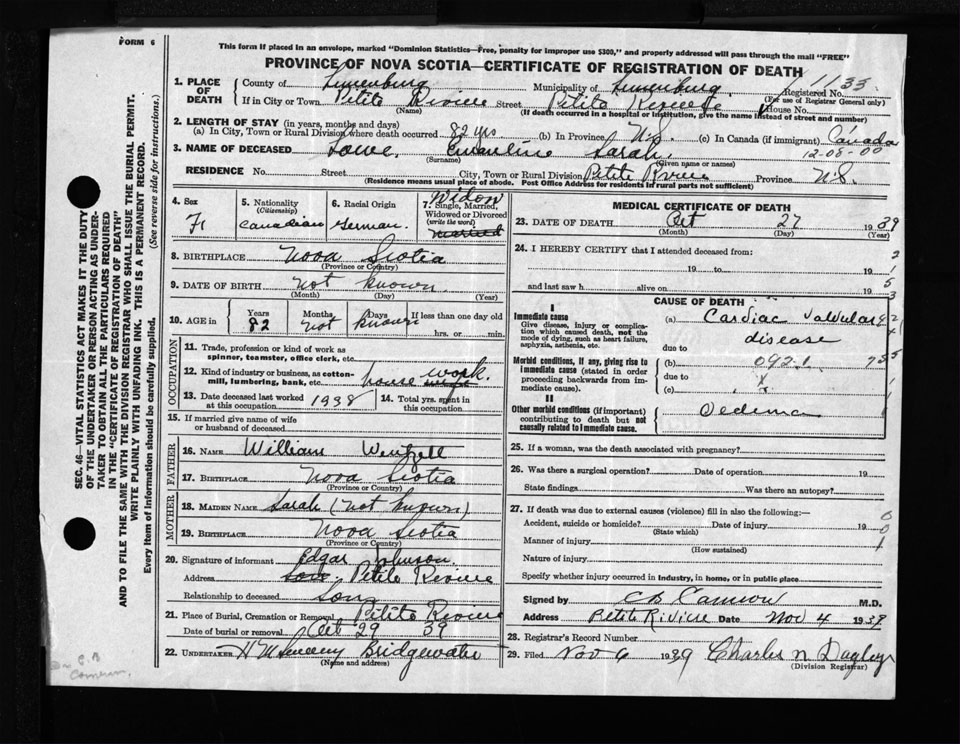 FORM 6
This form if placed in an envelope, marked "Dominion Statistics—Free, penalty for improper use $300," and properly addressed will pass through the mail "FREE"
PROVINCE OF NOVA SCOTIA—CERTIFICATE OF REGISTRATION OF DEATH
1. PLACE OF DEATH
County of Lunenburg Municipality of Lunenburg Registered No. 1133
(For use of Registrar General only)
If in City or Town Petite Riviere Street Petite Riviere House No.
(Name) (If death occurred in a hospital or institution, give the name instead of street and number)
2. LENGTH OF STAY (in years, months and days)
(a) In City, Town or Rural Division where death occurred 82 yrs (b) In Province N.S. (c) In Canada (if immigrant) Canada
12-08-00
3. NAME OF DECEASED Lowe. Emmaline Sarah.
(Surname) (Given name or names)
RESIDENCE No. Street City, Town or Rural Division Petite Riviere Province N.S.
(Residence means usual place of abode. Post Office Address for residents in rural parts not sufficient)
4. Sex
F
5. Nationality
(Citizenship)
Canadian
6. Racial Origin
German.
Widow
7. Single, Married, Widowed or Divorced
(write the word)
married
8. BIRTHPLACE Nova Scotia
(Province or Country)
9. DATE OF BIRTH not known.
(Month) (Day) (Year)
10. AGE in
Years 82
Months not
Days known
If less than one day old
hrs. or min.
OCCUPATION
11. Trade, profession or kind of work as spinner, teamster, office clerk, etc.
12. Kind of industry or business, as cotton-mill, lumbering, bank, etc. house work.
13. Date deceased last worked at this occupation 1938
14. Total yrs. spent in this occupation
15. If married give name of wife or husband of deceased
FATHER
16. NAME William Wentzell
17. BIRTHPLACE Nova Scotia
(Province or Country)
MOTHER
18. MAIDEN NAME Sarah (not known)
19. BIRTHPLACE Nova Scotia
(Province or Country)
20. Signature of informant Edgar Johnson.
Address Son, Petite Riviere
Relationship to deceased Son
21. Place of Burial, Cremation or Removal Petite Riviere
Date of burial or removal Oct 29 39
22. UNDERTAKER H M Sweeny Bridgewater
(Name and address)
MEDICAL CERTIFICATE OF DEATH
23. DATE OF DEATH Oct 27 1939
(Month) (Day) (Year)
24. I HEREBY CERTIFY that I attended deceased from:
19 to 19
and last saw h alive on 19
CAUSE OF DEATH
I
Immediate cause
Give disease, injury or complication which caused death, not the mode of dying, such as heart failure, asphyxia, asthenia, etc.
(a) Cardiac Valvular
disease
due to
Morbid conditions, if any, giving rise to immediate cause (stated in order proceeding backwards from immediate cause).
(b) 092.1
due to
(c)
II
Other morbid conditions (if important) contributing to death but not causally related to immediate cause.
Oedema
25. If a woman, was the death associated with pregnancy?
26. Was there a surgical operation? Date of operation 19
State findings Was there an autopsy?
27. If death was due to external causes (violence) fill in also the following:—
Accident, suicide or homicide? Date of injury 19
(State which)
Manner of injury
(How sustained)
Nature of injury
Specify whether injury occurred in industry, in home, or in public place
Signed by C B Cameron M.D.
Address Petite Riviere Date Nov 4 1939
28. Registrar's Record Number
29. Filed Nov 6 1939 Charles N Dagley
(Division Registrar)
SEC. 46—VITAL STATISTICS ACT MAKES IT THE DUTY OF THE UNDERTAKER OR PERSON ACTING AS UNDERTAKER TO OBTAIN ALL THE PARTICULARS REQUIRED IN THE "CERTIFICATE OF REGISTRATION OF DEATH" AND TO FILE THE SAME WITH THE DIVISION REGISTRAR WHO SHALL ISSUE THE BURIAL PERMIT.
WRITE PLAINLY WITH UNFADING INK. THIS IS A PERMANENT RECORD.
Every item of information should be carefully supplied. (See reverse side for instructions.)
C B
Cameron.